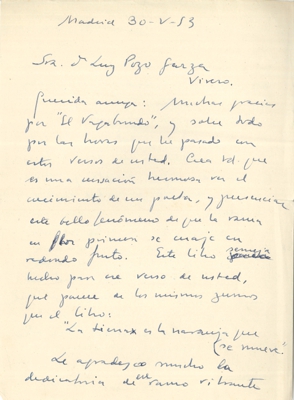 Madrid 30-V-53
Sra. dª Luz Pozo Garza
Vivero.
Querida amiga: Muchas gracias
por "El Vagabundo", y sobre todo
por las horas que he pasado con
estos versos de usted. Crea Vd. que
es una sensación hermosa ver el
crecimiento de un poeta, y presenciar
este bello fenómeno de que la rama
en flor primera se cuaje en
redondo fruto. Este libro
hecho para ese verso de usted,
que parece de los mismos zumos
que el libro:
"La tierra es la naranja que
se mueve".
Le agradezco mucho la
dedicatoria de en ramo vibrante